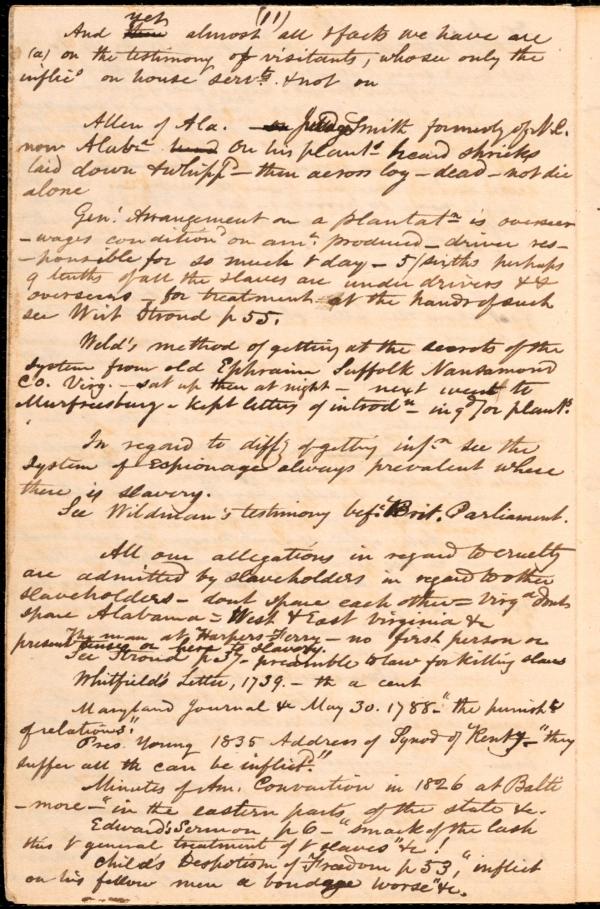 (11)
yet
And then almost all ye facts we have are
(a) on the testimony of visitants, who see only the
inflics on house servts. & not on
Allen of Ala. Judge Smith formerly of N.C.
now Alaba on his planta heard shrieks
laid down & whippd - then across log - dead - not die
alone
Genl Arrangement on a plantatn is overseer
- wages conditiond on amt. produced - driver res-
-ponsible for so much ye day - 5/sixths perhaps
9 tenths of all the slaves are under drivers &
overseers - for treatment at the hands of such
see Wirt Stroud p 55.
Weld's method of getting at the secrets of the
system from old Ephraim Suffolk Nansamond
Co. Virg. - sat up then at night - next went to
Murfreesburg - kept letters of introdn - inqd for plants.
In regard to diffy of getting infn see the
system of espionage always prevalent where
there is slavery.
See Wildman's testimony bef. Brit. Parliament.
All our allegations in regard to cruelty
are admitted by slaveholders in regard to other
slaveholders - dont spare each other = Virga dont
spare Alabama = West & East Virginia &c
The man at Harpers Ferry - no first person or
present tense or here to slavery.
See Stroud p 37 - preamble to law for killing slaves
Whitfield's Letter, 1739. - th a cent
Maryland Journal &c May 30. 1788 - "the punisht
of relations."
Pres. Young 1835 Address of Synod of Kenty - "they
suffer all th can be inflictd"
Minutes of Am. Convention in 1826 at Balti
-more - "in the eastern parts of the state &c.
Edward's Sermon p 6 - "smack of the lash
this ye general treatment of ye slaves" &c!
Child's Despotism of Freedom p 53, "inflict
on his fellow men a bondage worse" &c.